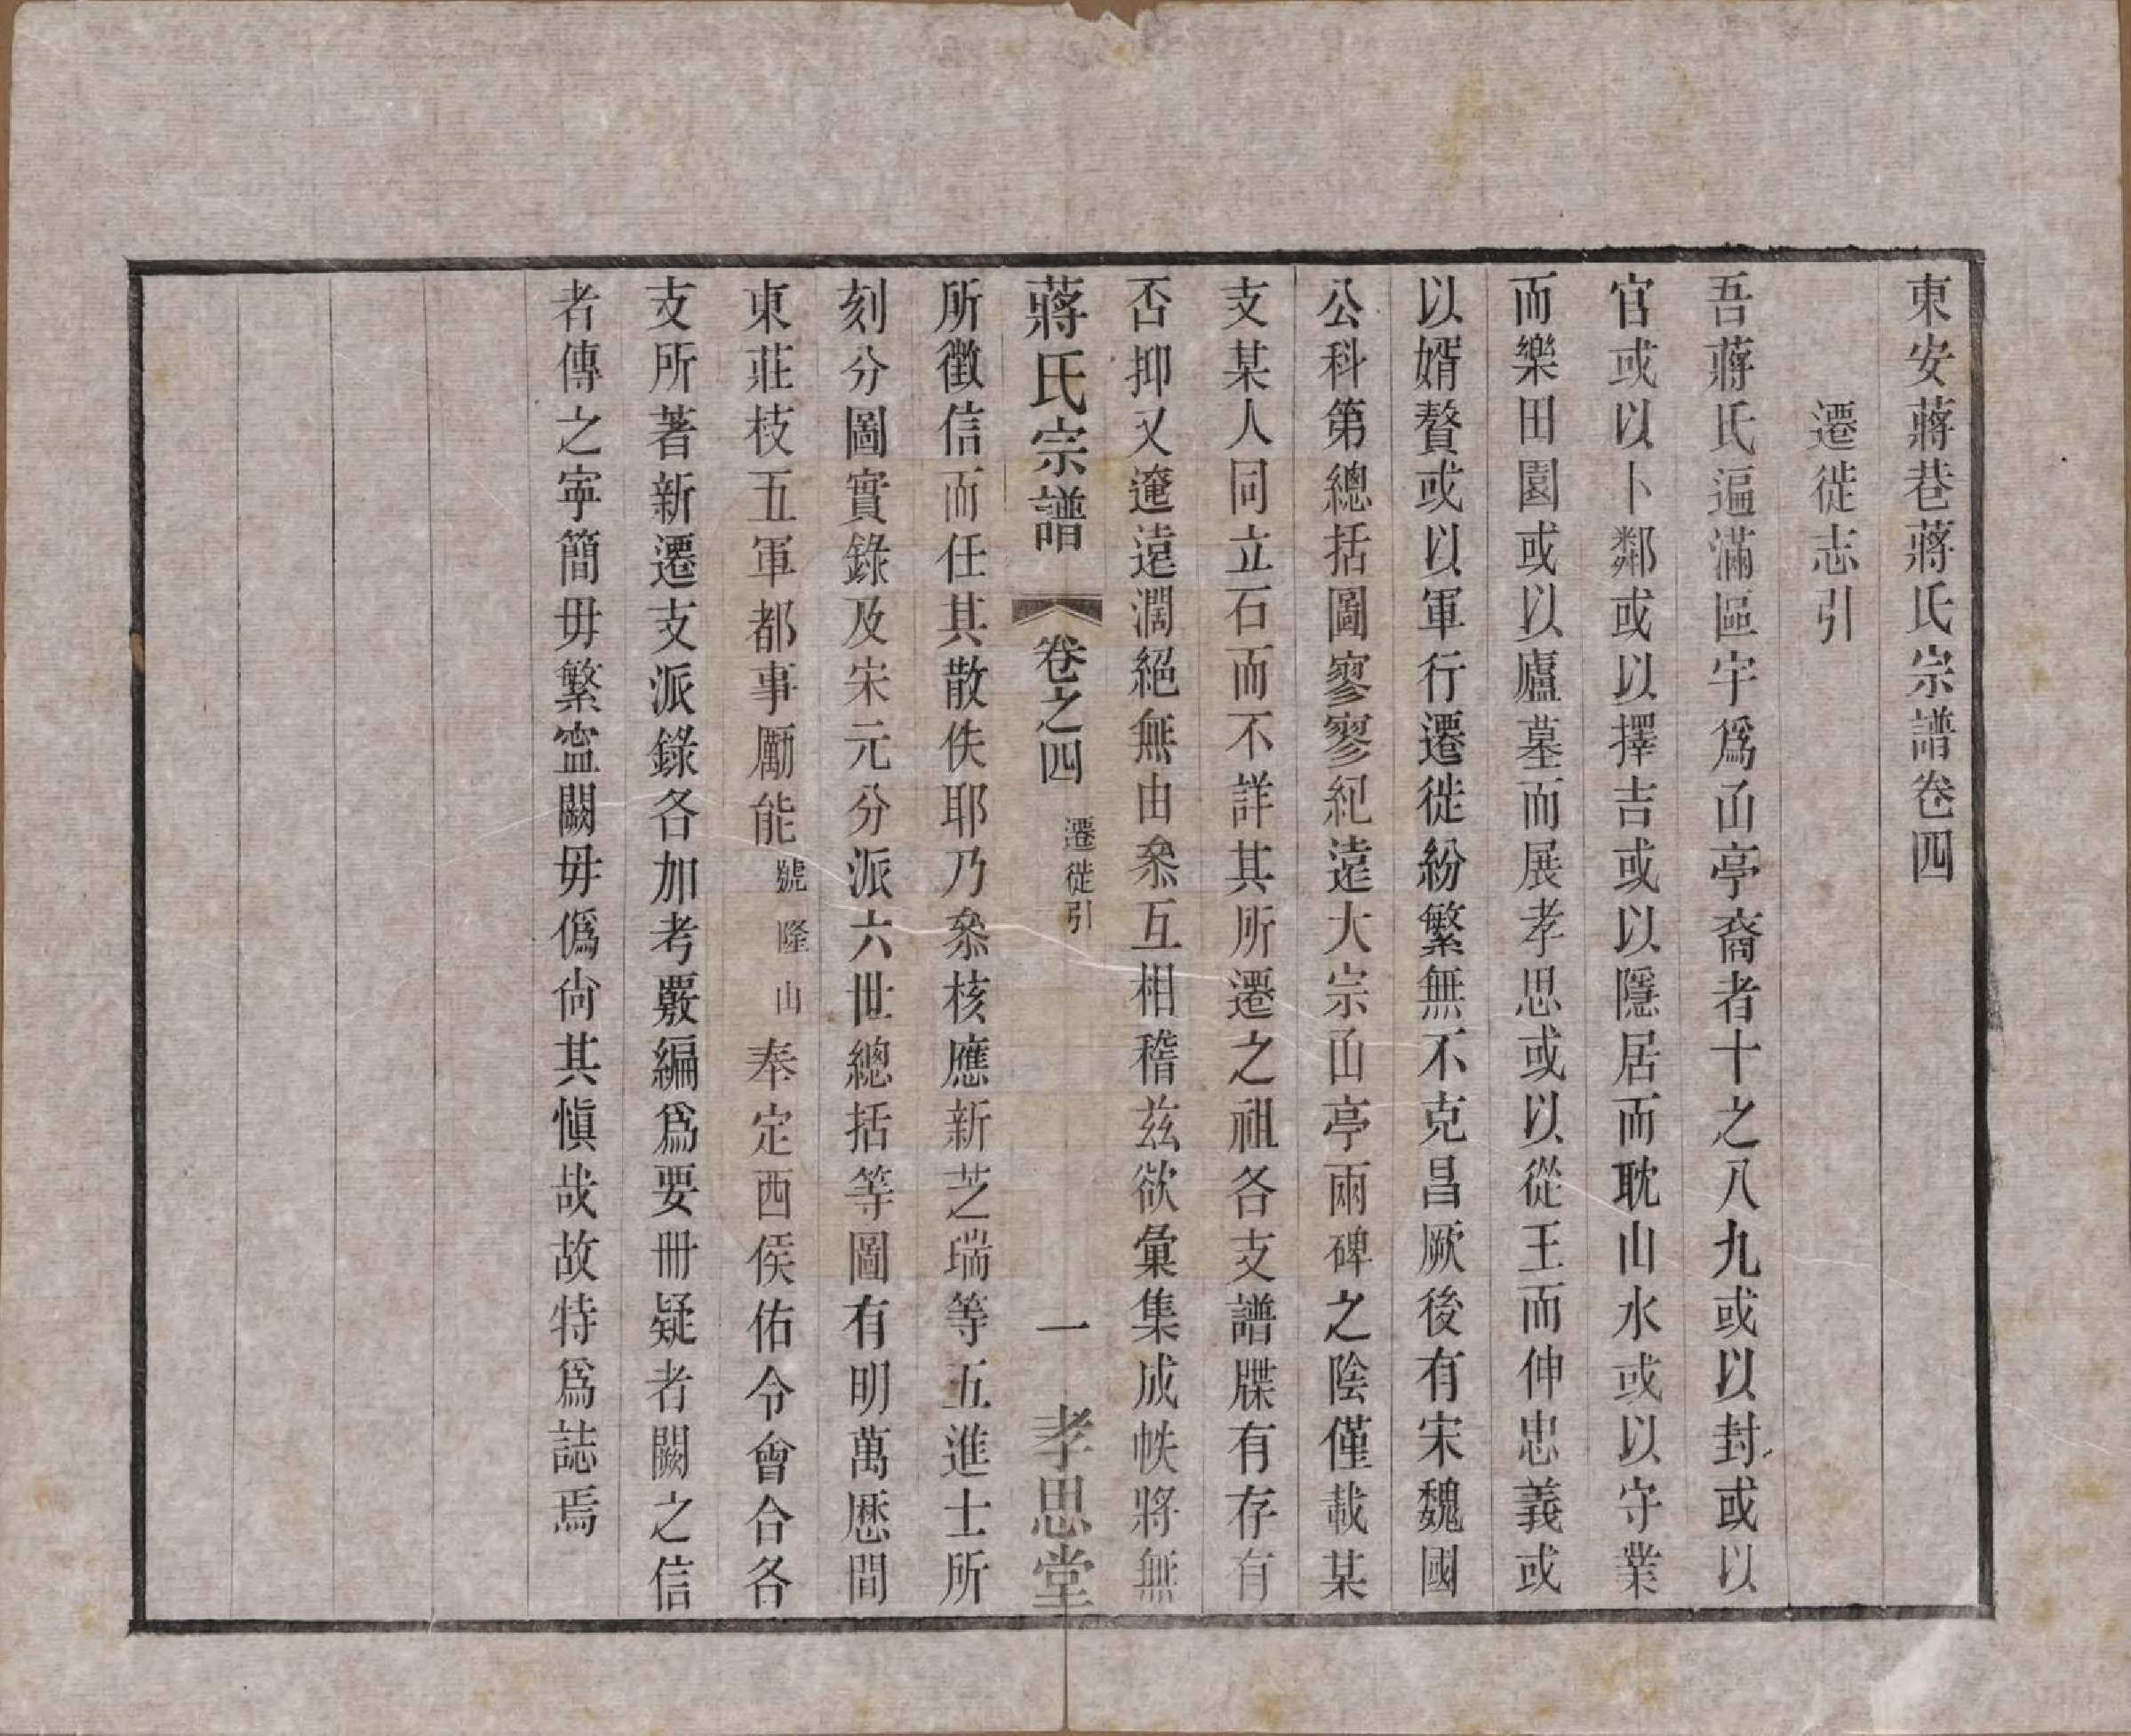 東安蔣巷蔣氏宗譜卷四
遷徙志引
吾蔣氏遍滿區宇爲凾亭裔者十之八九或以封或以
官或以卜鄰或以擇吉或以隱居而耽山水或以守業
而樂田園或以廬墓而展孝思或以從王而伸忠義或
以婿贅或以軍行遷徙紛繁無不克昌厥後有宋魏國
公科第總括圖寥寥紀遠大宗凾亭兩碑之陰僅載某
支某人同立石而不詳其所遷之祖各支譜牒有存有
否抑又遼遠濶絕無由叅互相稽茲欲彙集成帙將無
蔣氏宗譜 卷之四 遷徙引 一 孝思堂
所徵信而任其散佚耶乃叅核應新芝瑞等五進士所
刻分圖實錄及宋元分派六世總括等圖有明萬厯間
東莊枝五軍都事勵能號隆山奉定西侯佑令會合各
支所著新遷支派錄各加考覈編爲要冊疑者闕之信
者傳之寕簡毋繁寍闕毋僞尙其愼哉故特爲誌焉